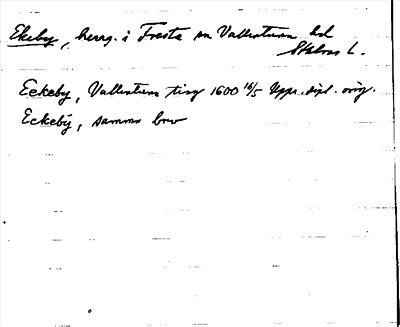 Ekeby, herrg. i Fresta sn Vallentuna hd
Sthlms L.
Eekeby, Vallentuna ting 1600 16/5 Upps. dipl. orig.
Eckebÿ, samma brev